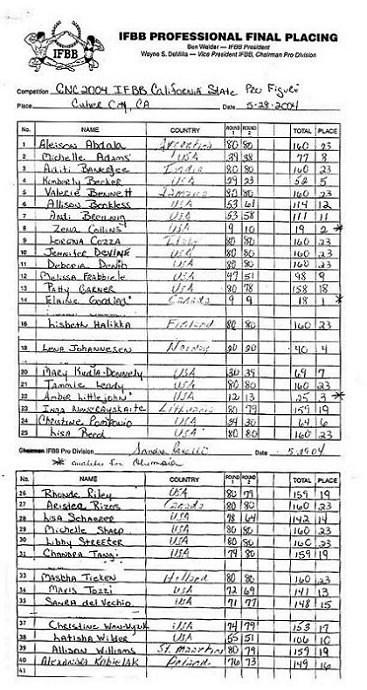 IFBB PROFESSIONAL FINAL PLACING
Ben Weider — IFBB President
Wayne S. DeMilia — Vice President IFBB, Chairman Pro Division
IFBB
Competition GNC 2004 IFBB California State Pro Figure
Place Culver City, CA Date 5-28-2004
No. NAME COUNTRY ROUND 1 ROUND 2 TOTAL PLACE
1 Aleisson Abdala Argentina 80 80 160 23
2 Michelle Adams USA 39 38 77 8
3 Aditi Banerjee India 80 80 160 23
4 Kimberly Becker USA 29 23 52 5
5 Valerie Bennett Jamaica 80 80 160 23
6 Allison Benkless USA 53 61 114 12
7 Andi USA 53 58 111 11
8 Zena Collins USA 9 10 19 2 *
9 Lorena Cozza Italy 80 80 160 23
10 Jennifer Devine USA 80 80 160 23
11 Deberia USA 80 80 160 23
12 Melissa Frabbiele USA 47 51 98 9
13 Patty Garner USA 80 78 158 18
14 Elaine Goodlad Canada 9 9 18 1 *
16 Lisbeth Halikka Finland 80 80 160 23
18 Lena Johannesen Norway 20 20 40 4
20 Mary Kudla-Donnelly USA 30 39 69 7
21 Tammie Leady USA 80 80 160 23
22 Amber Littlejohn USA 12 13 25 3 *
23 Inga Neverayskaite Lithuania 80 79 159 19
24 Christine Pomponio USA 34 30 64 6
25 Lisa Reed USA 80 80 160 23
Chairman IFBB Pro Division Date
* Qualifies for Olympia
No. NAME COUNTRY ROUND 1 ROUND 2 TOTAL PLACE
26 Rhonda Riley USA 80 79 159 19
27 Arister Rizos Canada 80 80 160 23
28 Lisa Schaerer USA 78 64 142 14
29 Michelle Sharp USA 80 80 160 23
30 Libby Streeter USA 80 80 160 23
31 Chandra Tangi USA 79 80 159 19
33 Mascha Tieken Holland 80 80 160 23
34 Mavis Tozzi USA 72 69 141 13
35 Sandra del Vechio USA 71 77 148 15
37 Christine Wan USA 74 79 153 17
38 Latisha Wilder USA 55 51 106 10
39 Allison Williams St. Maarten 80 79 159 19
40 Alexandra Kobielak Poland 76 73 149 16
41